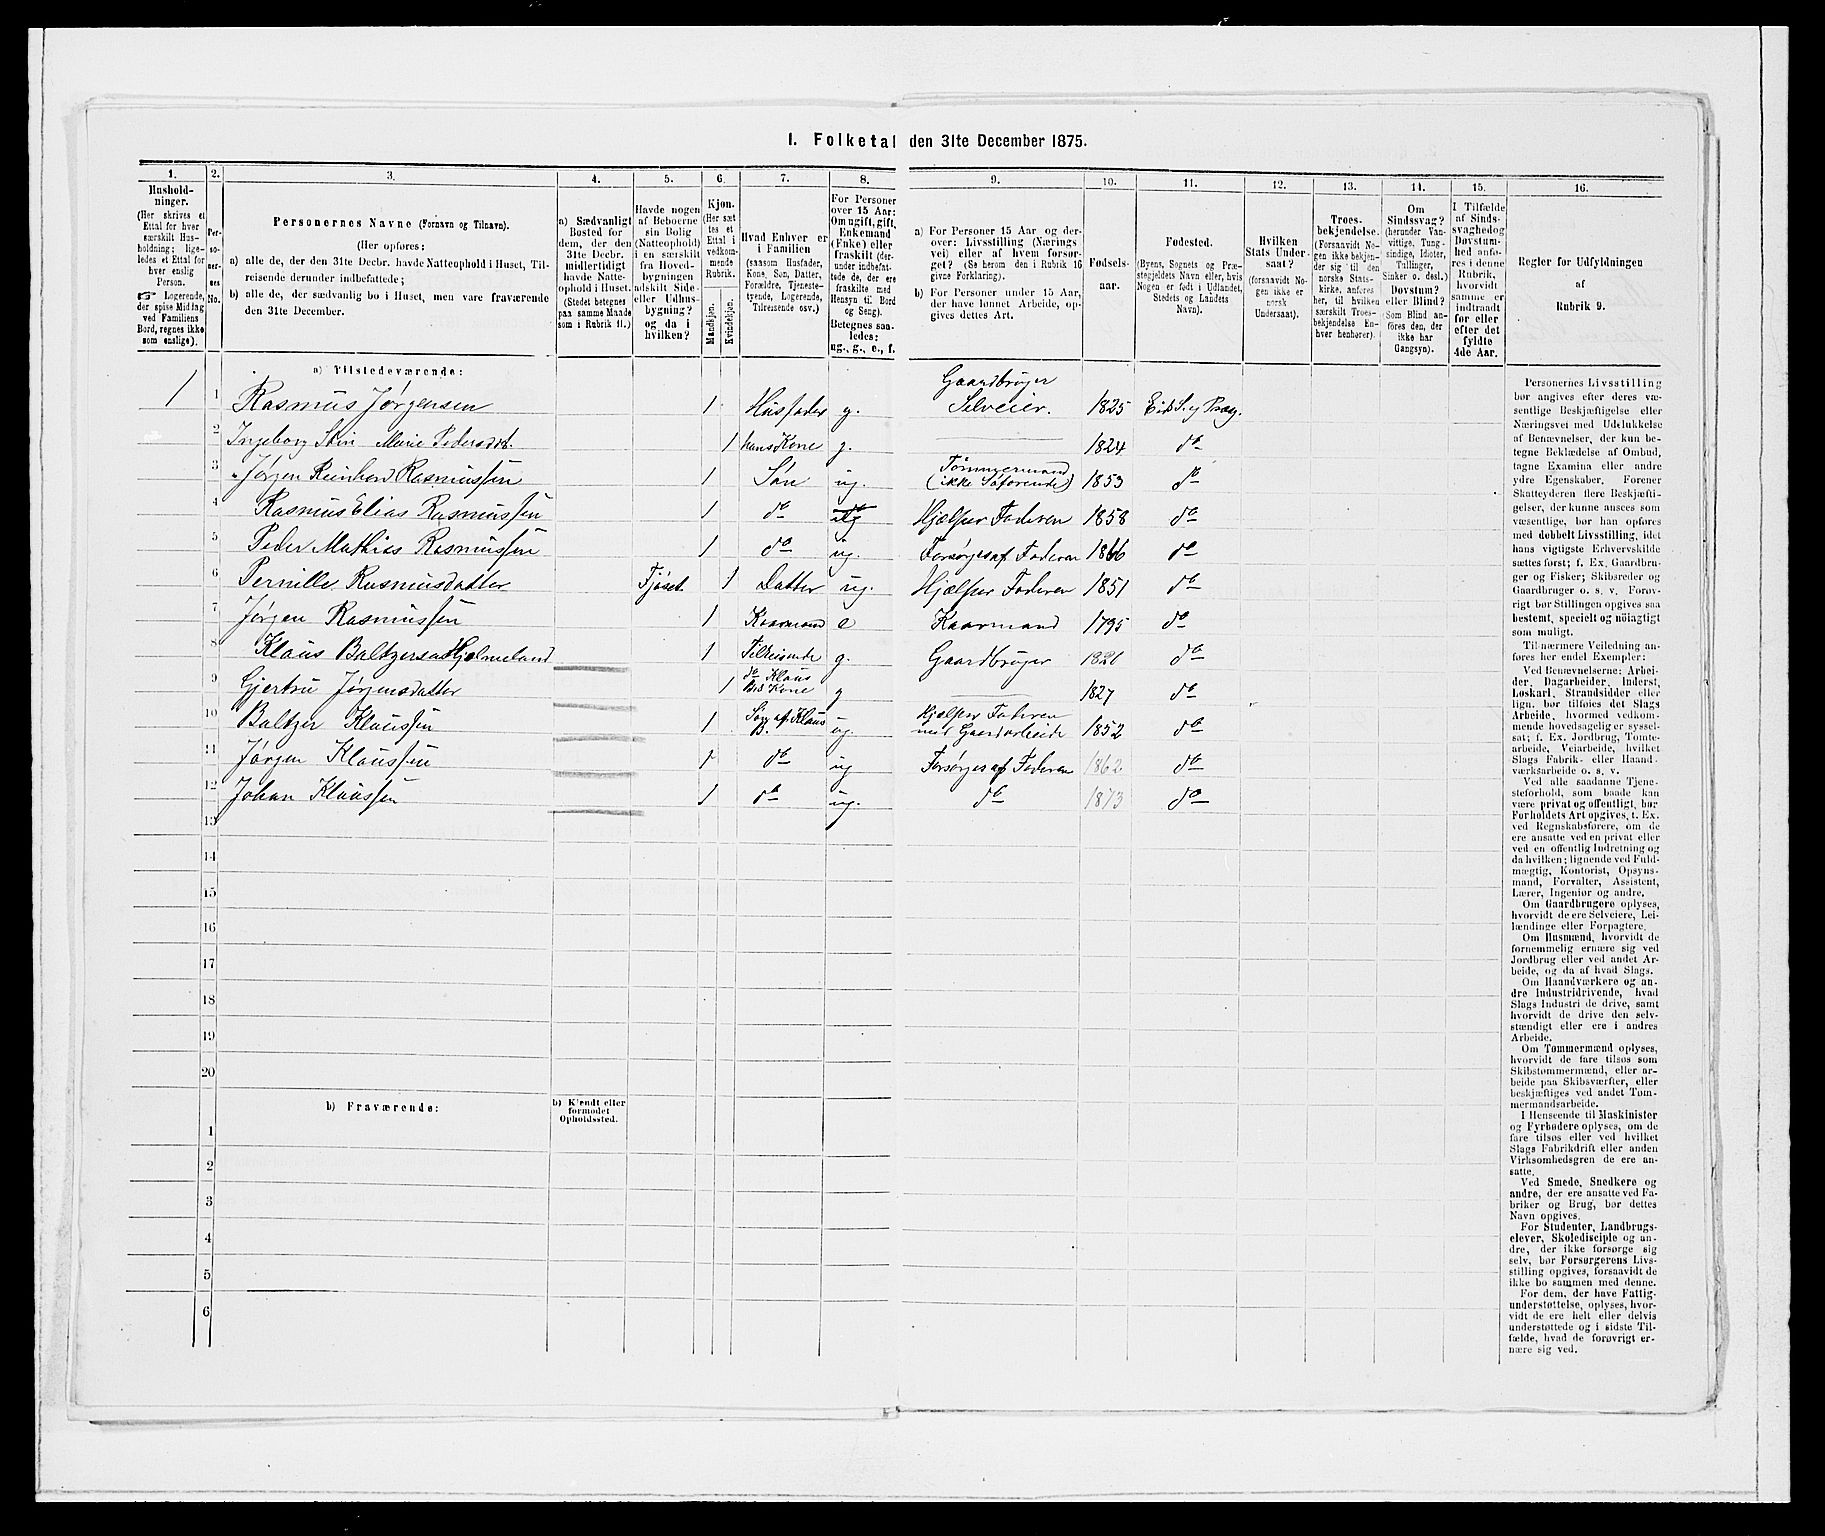 I. Folketal den 31te December 1875.
1.
2.
3.
4.
5.
6.
7.
8.
9.
10.
11.
12.
13.
14.
15.
16.
Hushold-
ninger.
(Her skrives et
Ettal for hver
særskilt Hus-
holdning; lige-
ledes et Ettal for
hver enslig
Person.
☞ Logerende,
der spise Middag
ved Familiens
Bord, regnes ikke
som enslige).
Per-
so-
ner-
nes
No.
Personernes Navne (Fornavn og Tilnavn).
(Her opføres:
a) alle de, der den 31te Decbr. havde Natteophold i Huset, Til-
reisende derunder indbefattede;
b) alle de, der sædvanlig bo i Huset, men vare fraværende
den 31te December.
a) Sædvanligt
Bosted for
dem, der den
31te Decbr.
midlertidigt
havde Natte-
ophold i Huset.
(Stedet betegnes
paa samme Maade
som i Rubrik 11.)
Havde nogen
af Beboerne
sin Bolig
(Natteophold)
i en særskilt
fra Hoved-
bygningen
adskilt Side-
eller Udhus-
bygning?
og da i
hvilken?
Kjøn.
(Her sæt-
tes et
Ettal i
vedkom-
mende
Rubrik.
Mandkjøn.
Kvindekjøn.
Hvad Enhver er
i Familien
(saasom Husfader,
Kone, Søn, Datter,
Forældre, Tjeneste-
tyende, Logerende,
Tilreisende osv.)
For Personer
over 15 Aar:
Om ugift, gift,
Enkemand
(Enke) eller
fraskilt (der-
under indbefat-
tede de, der ere
fraskilte med
Hensyn til Bord
og Seng).
Betegnes saa-
ledes:
ug., g., e., f.
a) For Personer 15 Aar og der-
over: Livsstilling (Nærings-
vei) eller af hvem forsør-
get? (Se herom den i Rubrik 16
givne Forklaring).
b) For Personer under 15 Aar,
der have lønnet Arbeide, op-
gives dettes Art.
Fødsels-
aar.
Fødested.
(Byens, Sognets og Præ-
stegjeldets Navn eller, hvis
Nogen er født i Udlandet,
Stedets og Landets
Navn).
Hvilken
Stats Under-
saat?
(forsaavidt No-
gen ikke er
norsk
Undersaat).
Troes-
bekjendelse.
(Forsaavidt No-
gen ikke bekjen-
der sig til den
norske Stats-
kirke, anføres
her, til hvilken
særskilt Troes-
bekjendelse En-
hver henhører).
Om
Sindssvag?
(herunder Van-
vittige, Tung-
sindige, Idioter,
Tullinger,
Sinker o. desl.)
Døvstum?
eller Blind?
(Som Blind an-
føres den, der
ikke har
Gangsyn).
I Tilfælde
af Sinds-
svaghed og
Døvstum-
hed anfø-
res i denne
Rubrik,
hvorvidt
samme er
indtraadt
før eller
efter det
fyldte
4de Aar.
Regler for Udfyldningen
af
Rubrik 9.
a) Tilstedeværende:
1 1 Rasmus Jørgensen 1 Husfader g. Gaardbrüger Selveier. 1825 Eids S. og Præg.
2 Ingeborg Stin Marie Pedersdt. 1 hans Kone g. 1824 do
3 Jørgen Reinhard Rasmussen 1 Søn ug. Tømmermand (ikke Søfarende) 1853 do
4 Rasmus Elias Rasmussen 1 do ug Hjælper Faderen 1858 do
5 Peder Mathias Rasmussen 1 do ug. Forsørges af Faderen 1866 do
6 Pernille Rasmusdatter Fjøset 1 Datter ug. Hjælper Faderen 1851 do
7 Jørgen Rasmussen 1 Kaarmand e Kaarmand 1795 do
8 Klaus Baltzersen Hjelmeland 1 Tilreisende g. Gaardbrüger 1826 do
9 Gjertru Jørgensdatter 1 do Klaus Bs Kone g 1827 do
10 Baltzer Klaussen 1 Søn af Klaus B. ug. Hjælper Faderen med Gaardarbeide 1852 do
11 Jørgen Klaussen 1 do ug Forsørges af Faderen 1862 do
12 Johan Klaussen 1 do ug. do 1873 do
13
14
15
16
17
18
19
20
b) Fraværende:
b) Kjendt eller
formodet
Opholdssted.
1
2
3
4
5
6
Personernes Livsstilling
bør angives efter deres væ-
sentlige Beskjæftigelse eller
Næringsvei med Udelukkelse
af Benævnelser, der kun be-
tegne Beklædelse af Ombud,
tagne Examina eller andre
ydre Egenskaber. Forener
Skatteyderen flere Beskjæfti-
gelser, der kunne ansees som
væsentlige, bør han opføres
med dobbelt Livsstilling, idet
hans vigtigste Erhvervskilde
sættes først; f. Ex. Gaardbru-
ger og Fisker; Skibsreder og
Gaardbruger o. s. v. Forøv-
rigt bør Stillingen opgives saa
bestemt, specielt og nøiagtigt
som muligt.
Til nærmere Veiledning an-
føres her endel Exempler:
Ved Benævnelserne: Arbei-
der, Dagarbeider, Inderst,
Løskarl, Strandsidder eller
lign. bør tilføies det Slags
Arbeide, hvormed vedkom-
mende hovedsagelig er syssel-
sat; f. Ex. Jordbrug, Tomte-
arbeide, Veiarbeide, hvilket
Slags Fabrik- eller Haand-
værksarbeide o. s. v.
Ved alle saadanne Tjene-
steforhold, som baade kan
være privat og offentligt, bør
Forholdets Art opgives, t. Ex.
ved Regnskabsførere, om de
ere ansatte ved en privat eller
ved en offentlig Indretning og
da hvilken; lignende ved Fuld-
mægtig, Kontorist, Opsyns-
mand, Forvalter, Assistent,
Lærer, Ingeniør og andre.
Om Gaardbrugere oplyses,
hvorvidt de ere Selveiere, Lei-
lændinge eller Forpagtere.
Om Husmænd, hvorvidt de
fornemmelig ernære sig ved
Jordbrug eller ved andet Ar-
beide, og da af hvad Slags.
Om Haandværkere og an-
dre Industridrivende, hvad
Slags Industri de drive, samt
hvorvidt de drive den selv-
stændigt eller ere i andres
Arbeide.
Om Tømmermænd oplyses,
hvorvidt de fare tilsøs som
Skibstømmermænd, eller ar-
beide paa Skibsværfter, eller
beskjæftiges ved andet Tøm-
mermandsarbeide.
I Henseende til Maskinister
og Fyrbødere oplyses, om de
fare tilsøs eller ved hvilket
Slags Fabrikdrift eller anden
Virksomhedsgren de ere an-
satte.
Ved Smede, Snedkere og
andre, der ere ansatte ved Fa-
briker og Brug, bør dettes
Navn opgives.
For Studenter, Landbrugs-
elever, Skoledisciple og an-
dre, der ikke forsørge sig
selv, bør Forsørgerens Livs-
stilling opgives, forsaavidt de
ikke bo sammen med denne.
For dem, der have Fattig-
understøttelse, oplyses, hvor-
vidt de ere helt eller delvis
understøttede og i sidste Til-
fælde, hvad de forøvrigt er-
nære sig ved.